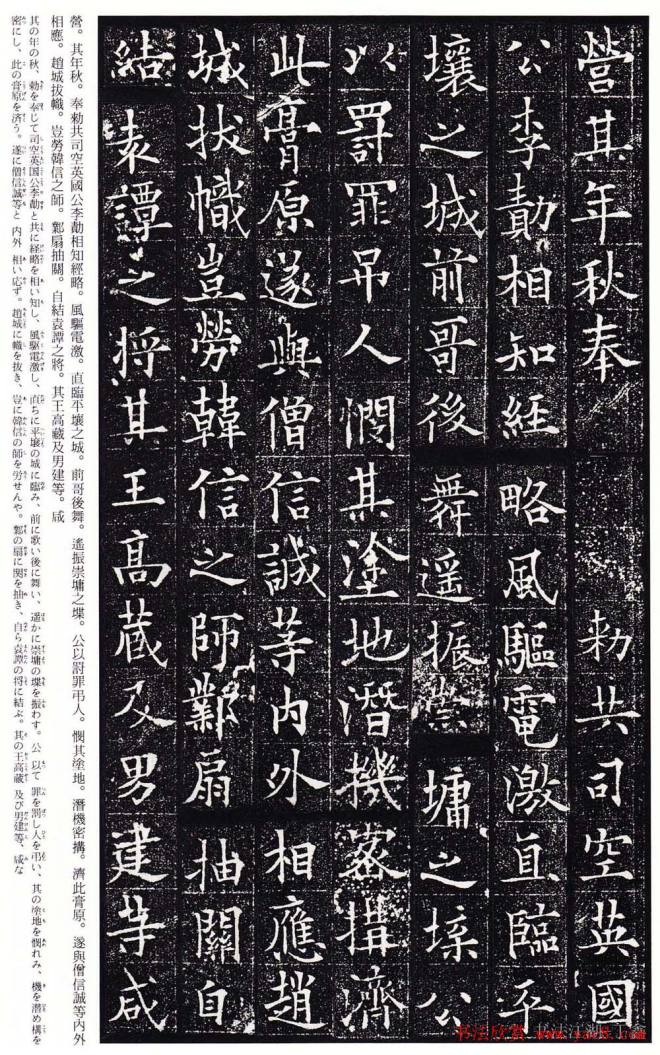 營其年秋奉　勅共司空英國
公李勣相知經略風驅電激直臨平
壤之城前哥後舞遥振崇墉之堞公
以罸罪吊人憫其塗地潛機密搆濟
此膏原遂與僧信誠等内外相應趙
城拔幟豈勞韓信之師鄴扇抽關自
結袁譚之將其王高藏及男建等咸
營。其年秋。奉勅共司空英國公李勣相知經略。風驅電激。直臨平壤之城。前哥後舞。遙振崇墉之堞。公以罸罪弔人。憫其塗地。潛機密搆。濟此膏原。遂與僧信誠等内外
相應。趙城拔幟。豈勞韓信之師。鄴扇抽關。自結袁譚之將。其王高藏及男建等。咸
其の年の秋、勅を奉じて司空英国公李勣と共に経略を相い知し、風驅電激し、直ちに平壌の城に臨み、前に歌い後に舞い、遥かに崇墉の堞を振わす。公 以て 罪を罰し人を弔い、其の塗地を憫れみ、機を潜め構を
密にし、此の膏原を済う。遂に僧信誠等と 内外 相い応ず。趙城に幟を抜き、豈に韓信の師を労せんや。鄴の扇に関を抽き、自ら袁譚の将に結ぶ。其の王高蔵 及び男建等、咸な
书法欣赏